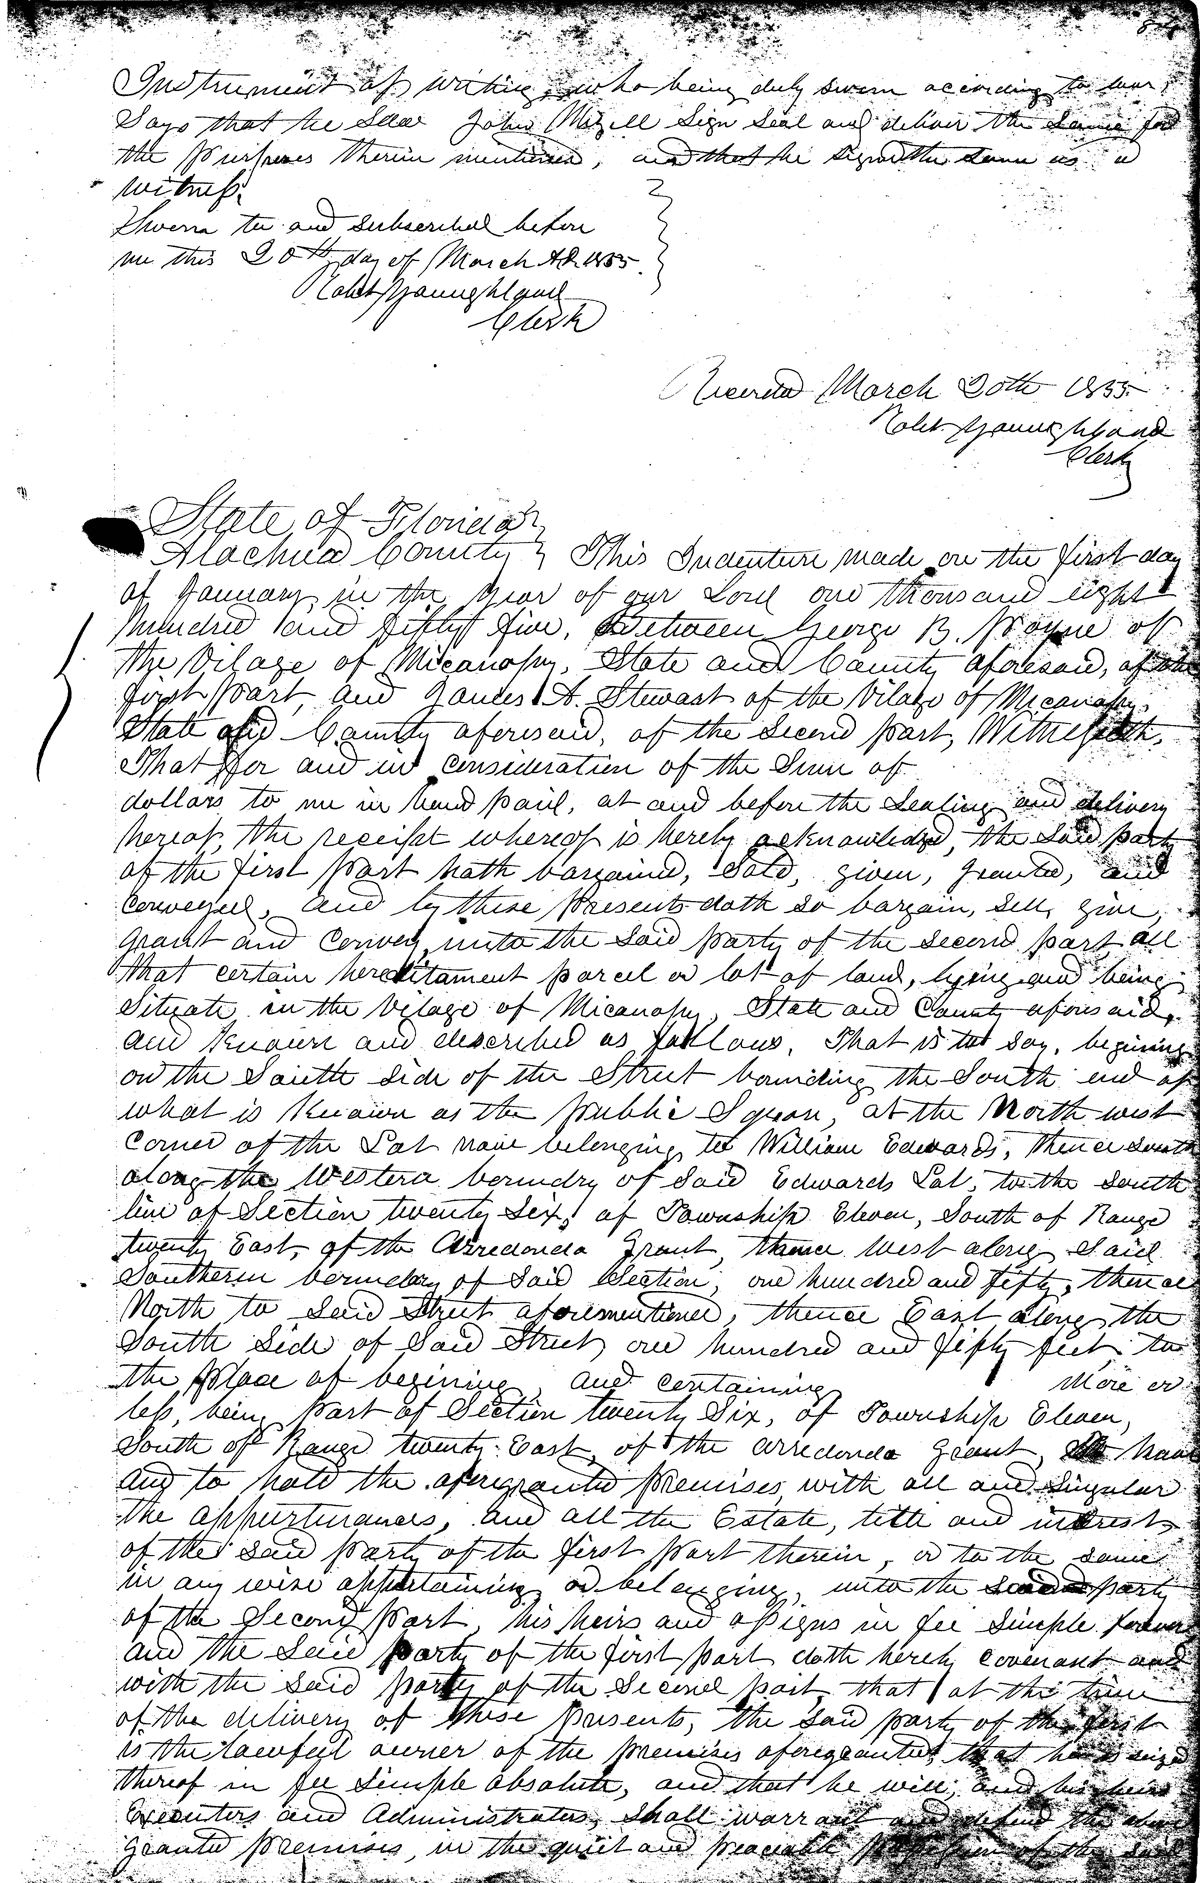 Instrument of writing, who being duly sworn according to law,
Says that he Saw John Mizell Sign Seal and deliver the Same for
the purposes therein mentioned, and that he signed the same as a
witness.
Sworn to and subscribed before
me this 20th day of March A.D. 1855.
Robt Younghland
Clerk
Recorded March 20th 1855
Robt Younghland
Clerk
State of Florida
Alachua County This Indenture made on the first day
of January, in the year of our Lord one thousand eight
hundred and fifty five, Between George B. Payne of
the Vilage of Micanopy, State and County aforesaid, of the
first part, and James A. Stewart of the Vilage of Micanopy,
State and County aforesaid, of the Second part, Witnesseth,
That for and in consideration of the Sum of
dollars to me in hand paid, at and before the Sealing and delivery
hereof, the receipt whereof is hereby acknowledged, the Said party
of the first part hath bargained, Sold, given, granted, and
conveyed, and by these presents doth so bargain, sell, give,
grant and convey, unto the Said party of the second part all
that certain hereditament parcel or lot of land, lying and being
Situate in the Vilage of Micanopy, State and County aforesaid,
and Known and described as follows. That is to say, begining
on the South side of the Street bounding the South end of
what is Known as the public Square, at the North west
corner of the Lot now belonging to William Edwards, thence south
along the Western boundry of Said Edwards Lot, to the south
line of Section twenty Six, of Township Eleven, South of Range
twenty East, of the Arredondo Grant, thence West along Said
Southern boundary of Said Section, one hundred and fifty, thence
North to Said Street aforementioned, thence East along the
South Side of Said Street, one hundred and fifty feet, to
the place of begining, and containing More or
less, being part of Section twenty Six, of Township Eleven,
South of Range twenty East, of the arredondo grant, to have
and to hold the aforegranted premises, with all and Singular
the appurtenances, and all the Estate, title and interest
of the said party of the first part therein, or to the same
in any wise appertaining or belonging, unto the said party
of the Second part, his heirs and assigns in fee simple forever
and the Said party of the first part doth hereby covenant and
with the Said party of the Second part, that at the time
of the delivery of these presents, the said party of the first
is the lawfull owner of the premises aforegranted, that he is seized
thereof in fee simple absolute, and that he will, and his heirs
Executors and Administrators, Shall warrant and defend the above
granted premises, in the quiet and peaceable possession of the said